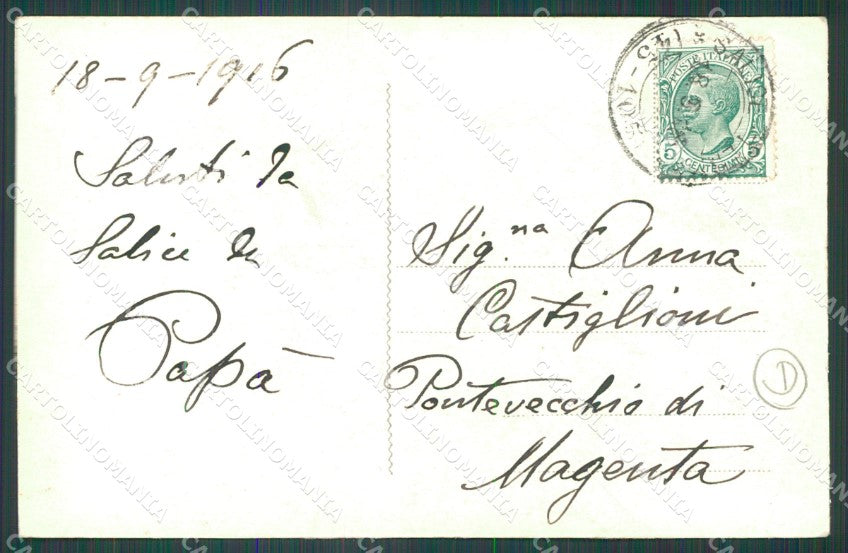 18-9-1916
Saluti da
Salice da
Papà
Sig.na Anna
Castiglioni
Pontevecchio di
Magenta
POSTE ITALIANE
5 CENTESIMI 5
SALICE
D
CARTOLINOMANIA